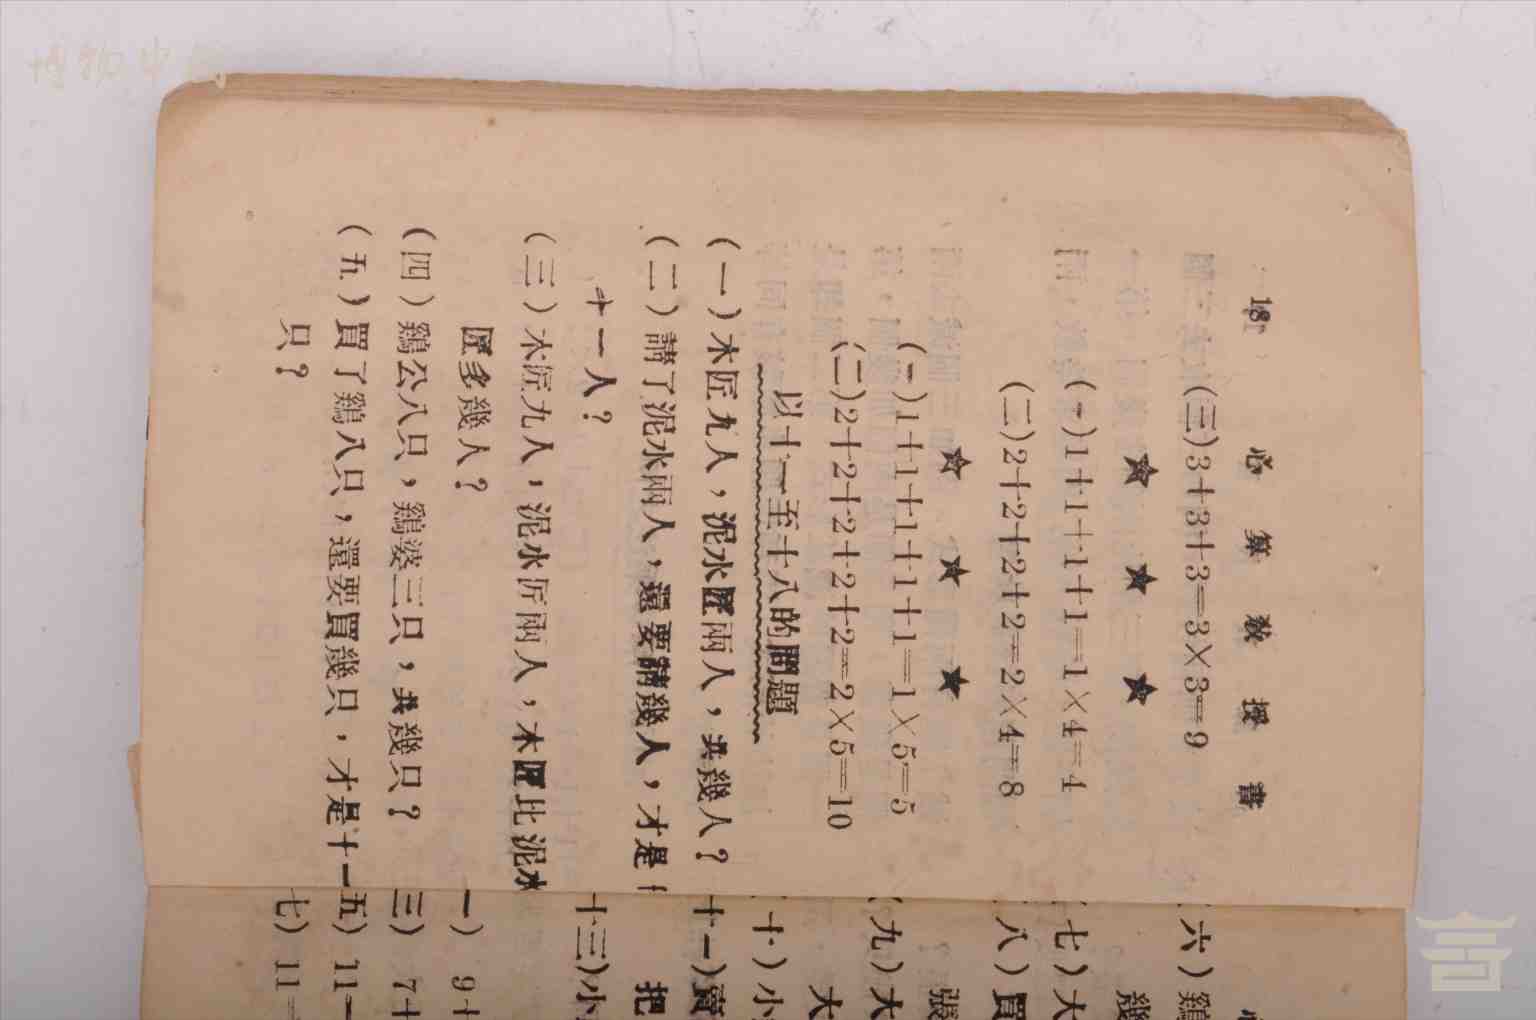 心算教授書
(三)3+3+3=3×3=9
★ ★ ★
(一)1+1+1+1=1×4=4
(二)2+2+2+2=2×4=8
★ ★ ★
(一)1+1+1+1+1=1×5=5
(二)2+2+2+2+2=2×5=10
以十一至十八的問題
(一)木匠九人，泥水匠兩人，共幾人？
(二)請了泥水兩人，還要請幾人，才是
十一人？
(三)木匠九人，泥水匠兩人，木匠比泥水
匠多幾人？
(四)鷄公八只，鷄婆三只，共幾只？
(五)買了鷄八只，還要買幾只，才是十一
只？
六)鷄
幾
七)大
八)買
張
九)大
大
十)小
十一)賣
把
十三)小
一) 9+
三) 7+
五) 11=
七) 11=
博物中